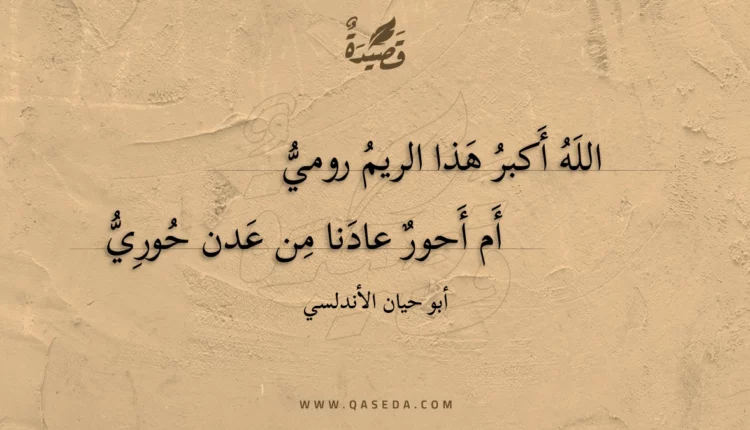 قَصِيدَةٌ
اللَهُ أَكبرُ هَذا الريمُ روميُّ
أَم أَحورٌ عادَنا مِن عَدن حُورِيُّ
أبو حيان الأندلسي
WWW.QASEDA.COM